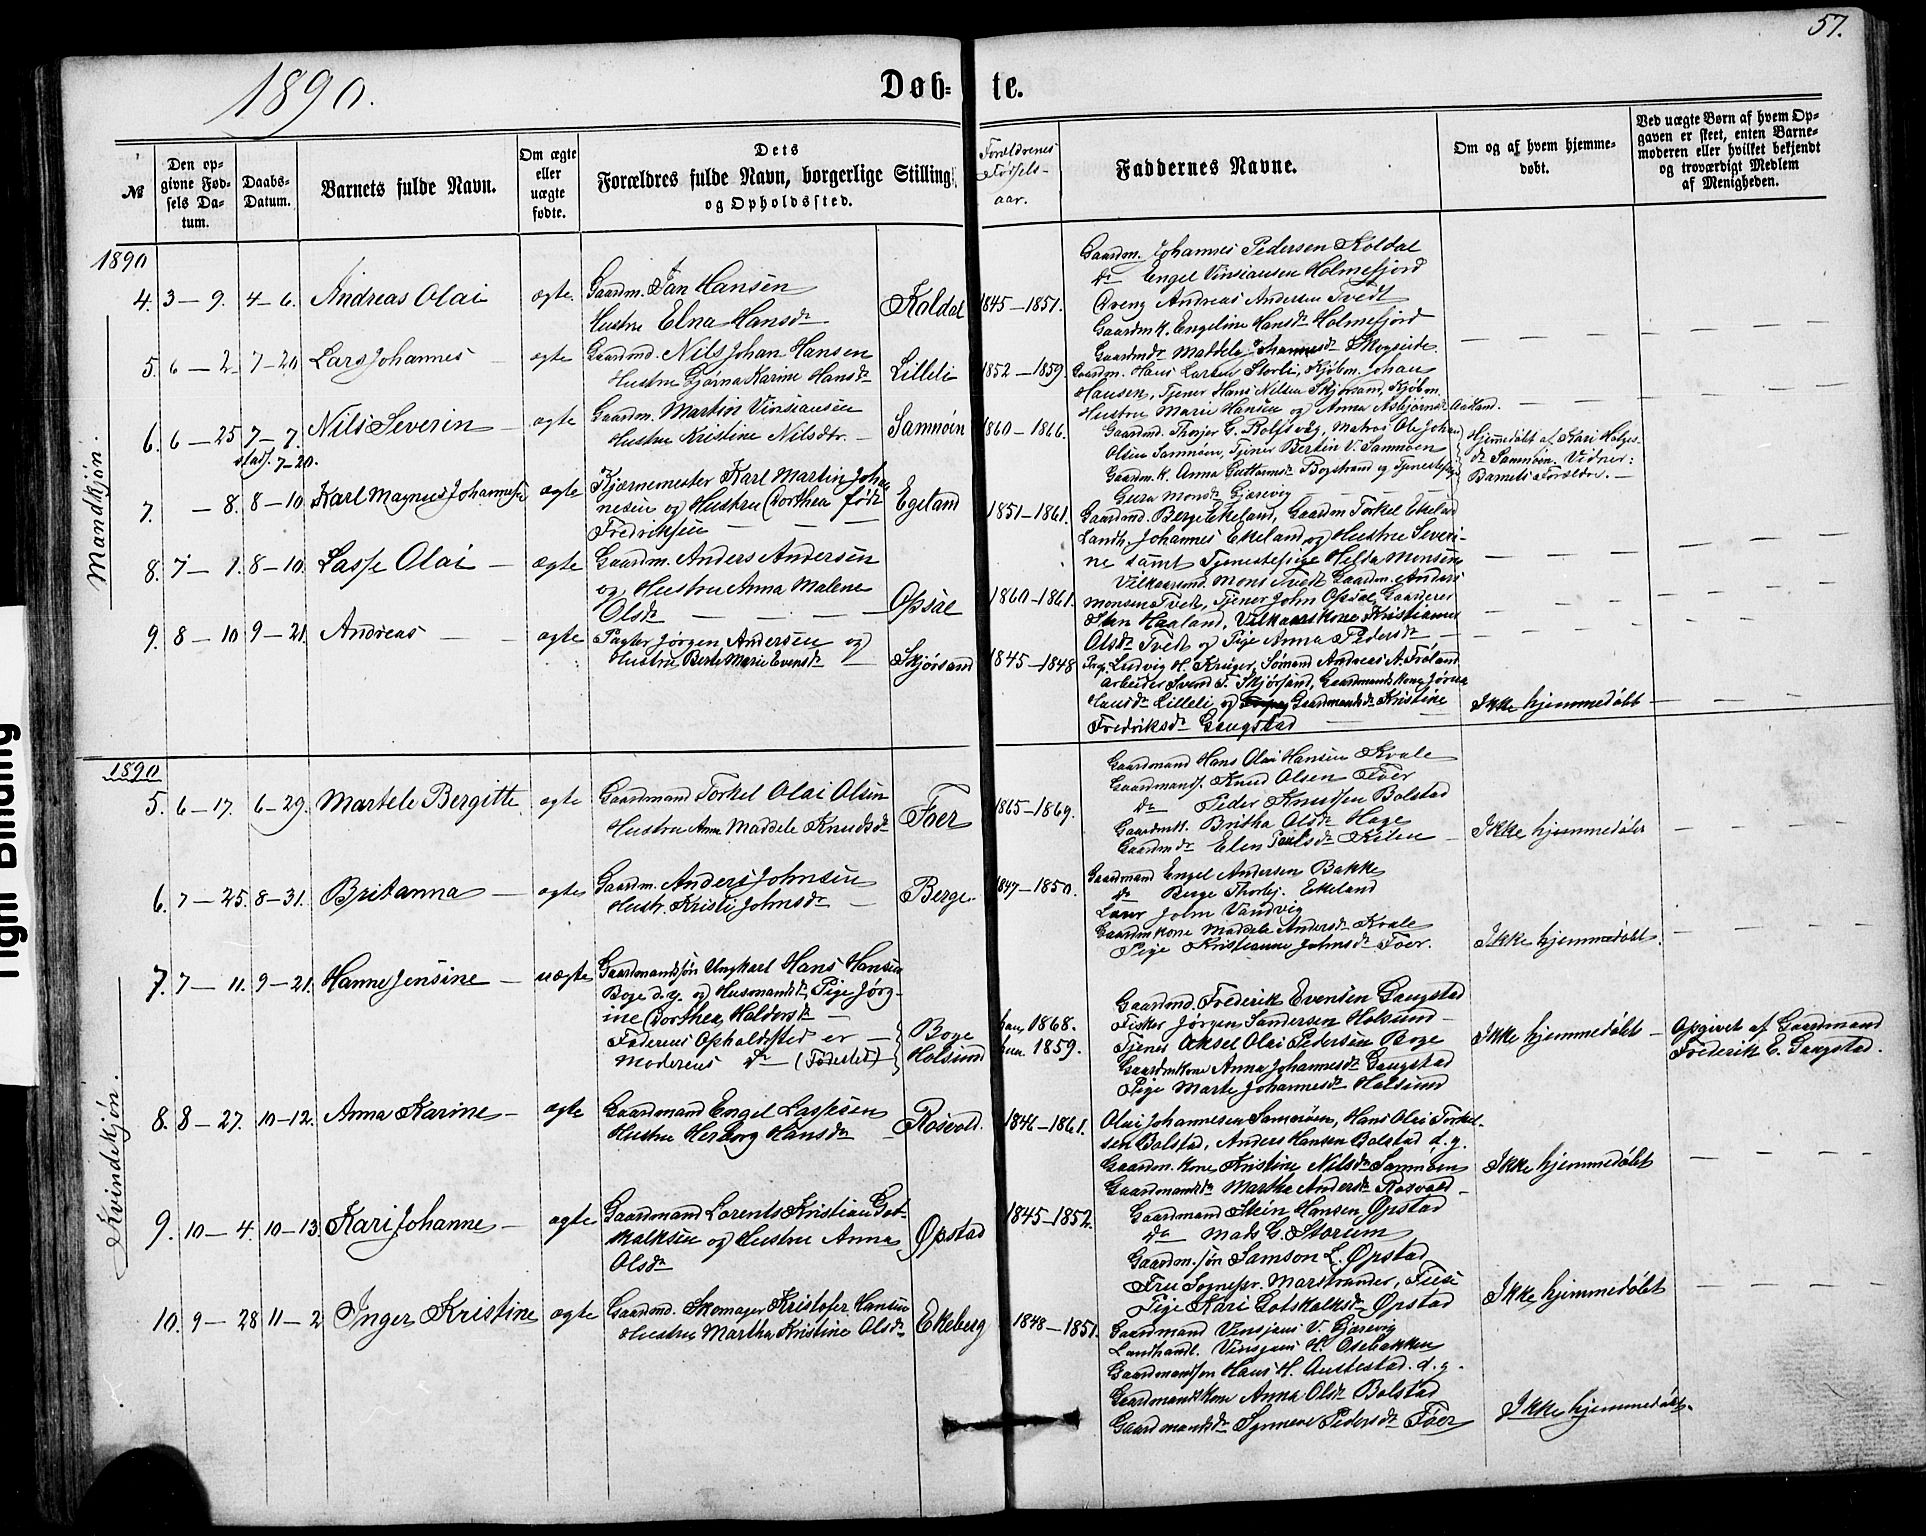 57.
1890.
Døb- te.
№
Den opgivne Fødsels Datum.
Daabs-Datum.
Barnets fulde Navn.
Om ægte eller uægte fødte.
Dets Forældres fulde Navn, borgerlige Stilling og Opholdssted.
Forældrenes Fødselsaar.
Faddernes Navne.
Om og af hvem hjemmedøbt.
Ved uægte Børn af hvem Opgaven er skeet, enten Barnemoderen eller hvilket bekjendt og troværdigt Medlem af Menigheden.
Mandkjøn.
1890
4. 3 — 9. 4 — 6. Andreas Olai ægte. Gaardm. Jan Hansen
Hustru Elna Hansdr
Koldal 1845 — 1851.
Gaardm. Johannes Pedersen Koldal
do Engel Vinsiansen Holmefjord
Dreng Andreas Andersen Tvedt
Gaardmk. Engeline Hansdr Holmefjord
Gaardmdr Maddela Johannesdr Skogseide.
5. 6 — 2. 7 — 20. Lars Johannes — ægte Gaardmd. Nils Johan Hansen
Hustru Gjørna Karine Hansdr
Lilleli 1852 — 1859.
Gaardm. Hans Larsen Storli, Kjøbm. Johan
Hansen, Tjener Hans Nilsen Skjørsand, Kjøbm.
Hustru Marie Hansen og Anna Asbjørnsdr Aaland.
6. 6 — 25 7 — 7. Nils Severin — ægte Gaardm. Martin Vinsiansen
stadf. 7-20.
Hustru Kristine Nilsdtr. —
Samnøin 1860 — 1866.
Gaardmd. Thorjer G. Koldsvåg, Matros Ole Johan
Olsen Samnøen, Tjener Bertin V. Samnøen
Gaardm. K. Anna Guttormsdr Bogstrand og Tjenestepige
Gura Monsdr Gjærevig
Hjemmedøbt af Kari Helgesdr Samnøen. Vidner:
Barnets Forældre. —
7. — 8. 8 — 10. Karl Magnus Johannesen ægte Kjærnemester Karl Martin Johannesen og Hustru Dorthea født
Fredriksen — — —
Egeland 1851 — 1861.
Gaardmd. Berge Ekeland, Gaardm Torkel Ekeland
Landh. Johannes Ekeland og Hustru Severine samt Tjenestepige Helda Monsine
8. 7 — 1. 8 — 10. Lasse Olai — ægte Gaardm. Anders Andersen
og Hustru Anna Malene
Olsdr — — —
Opsåe 1860 — 1861.
Vilkaarsmd. Mons Tvedt Gaardm. Anders
Monsen Tvedt, Tjener John Opsal, Gaardener
Sten Haaland, Vilkaarskone Kristianna
Olsdr Tvedt og Pige Anna Pedersdr —
9. 8 — 10 9 — 21. Andreas — — ægte Pagter Jørgen Andersen og
Hustru Berte Marie Evensdr —
Skjørsand 1845 — 1848
Pag. Ludvig H. Krüger, Sømand Andreas A. Frøland
Arbeider Svend T. Skjørsand, Gaardmandskone Jørna
Hansdr Lilleli og Gaardmandsdr Kristine
Fredriksdr Gaugstad — —
Ikke hjemmedøbt — — —
Kvindekjøn.
1890
5. 6 — 17. 6 — 29. Martele Bergitte ægte Gaardmand Torkel Olai Olsen
Hustru Ane Maddele Knudsdr
Foer 1865 — 1869.
Gaardmand Hans Olai Hansen Kvale
Gaardmands. Knud Olsen Foer
do Peder Knudsen Bolstad
Gaardmk. Britha Olsdr Hage
Gaardmdr Elen Poulsdr Kilen —
Ikke hjemmedøbt — — —
6. 7 — 25. 8 — 31. Britanna — ægte Gaardm. Anders Johnsen
Hustr. Kristi Johnsdr —
Berge 1847 — 1850.
Gaardmand Engel Andersen Bakke
do Berge Thorbj. Ekeland
Lærer John Vandvig
Gaardmkone Maddele Andersdr Kvale
Pige Kristianne Johnsdr Foer.
Ikke hjemmedøbt. — — —
7. 7 — 11. 9 — 21. Hanne Jensine — uægte Gaardmandssøn Ungkarl Hans Hansen
Boge d.y. og Husmandsdr Pige Jørgine Dorthea Haldorsdr —
Faderens Opholdssted er —
Moderens do — (Fødested)
Boge
Holsund
han, 1868.
hun 1859.
Gaardmd. Frederik Evensen Gaugstad
Fisker Jørgen Sandersen Holsund —
Tjener Aksel Olai Pedersen Boge
Gaardmkone Anna Johannesdr Gaugstad
Pige Marte Johannesdr Holsund
Ikke hjemmedøbt —
Opgivet af Gaardmand
Frederik E. Gaugstad.
8. 8 — 27. 10 — 12. Anna Karine — ægte Gaardmand Engel Lassesen
Hustru Herborg Hansdr —
Rosvold. 1846 — 1861.
Olai Johannesen Samnøen, Hans Olai Torkelsen Bolstad, Anders Hansen Bolstad d.y.
Gaardm. kone Kristine Nilsdr Samnøen
Gaardmandsdr Martha Andersdr Rosvold —
Ikke hjemmedøbt — — —
9. 10 — 4. 10 — 13. Kari Johanne — ægte Gaardmand Lorents Kristian Gotskalksen og Hustru Anna
Olsdr
Øpstad 1845 — 1852.
Gaardmand Stein Hansen Øpstad
do Mads G. Storum
Gaardm. søn Samson L. Øpstad
Fru Sognepr. Marstrander, Fuse
Pige Kari Gotskalksdr Øpstad
Ikke hjemmedøbt — — —
10. 9 — 28 11 — 2 Inger Kristine ægte Gaardmd. Skomager Kristofer Hansen
Hustru Martha Kristine Olsdr
Ekeberg 1848 — 1851.
Gaardmand Vinsjans V. Gjærevig
Landhandl. Vinsjans H. Osebakken
Gaardmandssøn Hans H. Austestad. d.y.
Gaardmandskone Anna Olsdr Bolstad
Gaardmandsdr Synneve Pedersdr Foer
Ikke hjemmedøbt.
Tight Binding